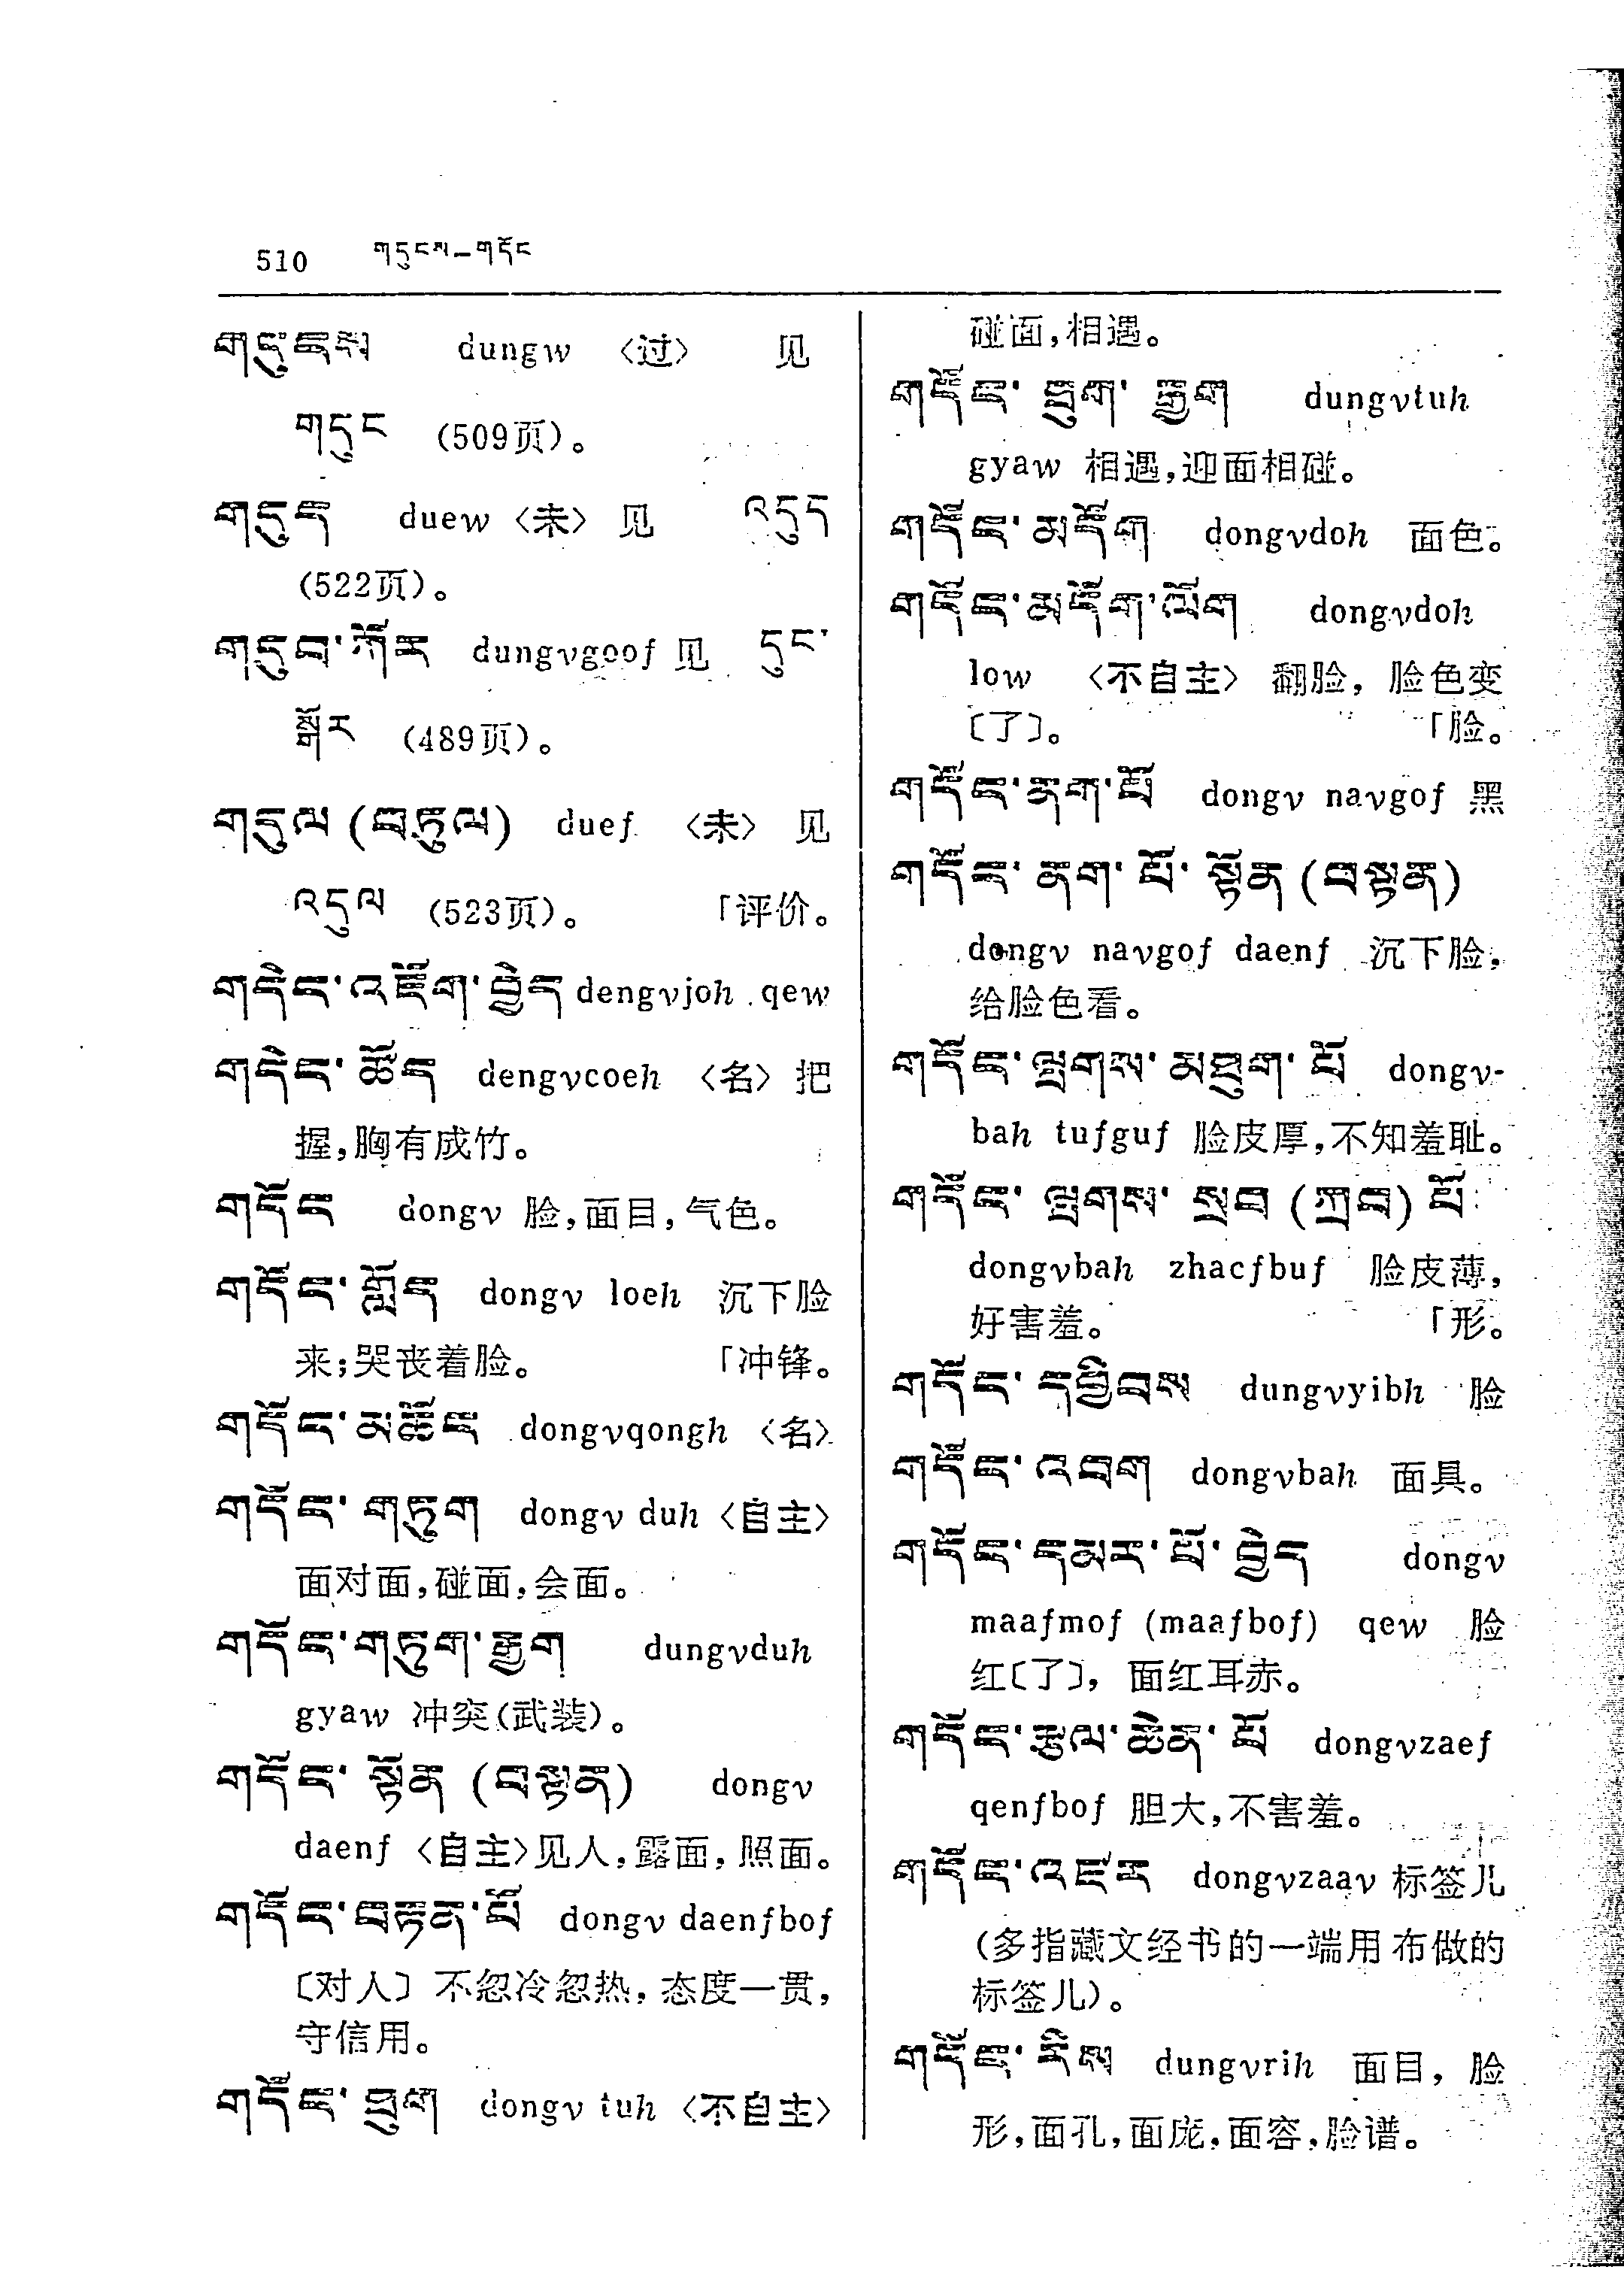 510 གདུངས–གདོང
གདུངས dungw 〈过〉 见
གདུང (509页)。
གདུད duew 〈未〉 见 འདུད
(522页)。
གདུབ་ཀོར dungvgoof 见 དུང་
སྒོར (489页)。
གདུལ (བཏུལ) duef 〈未〉 见
འདུལ (523页)。 「评价。
གདེང་འཇོག་བྱེད dengvjoh qew
གདེང་ཚོད dengvcoeh 〈名〉 把
握,胸有成竹。
གདོང dongv 脸,面目,气色。
གདོང་གློད dongv loeh 沉下脸
来;哭丧着脸。 「冲锋。
གདོང་མཆོང dongvqongh 〈名〉
གདོང་གཏུག dongv duh 〈自主〉
面对面,碰面,会面。
གདོང་གཏུག་རྒྱག dungvduh
gyaw 冲突(武装)。
གདོང་སྟོན (བསྟན) dongv
daenf 〈自主〉见人,露面,照面。
གདོང་བརྟན་པོ dongv daenfbof
〔对人〕不忽冷忽热,态度一贯,
守信用。
གདོང་ཐུག dongv tuh 〈不自主〉
碰面,相遇。
གདོང་ཐུག་རྒྱག dungvtuh
gyaw 相遇,迎面相碰。
གདོང་མདོག dongvdoh 面色。
གདོང་མདོག་ལོག dongvdoh
low 〈不自主〉 翻脸, 脸色变
〔了〕。 「脸。
གདོང་ནག་པོ dongv navgof 黑
གདོང་ནག་པོ་སྟོན (བསྟན)
dongv navgof daenf 沉下脸,
给脸色看。
གདོང་ལྤགས་མཐུག་པོ dongv-
bah tufguf 脸皮厚,不知羞耻。
གདོང་ལྤགས་སྲབ (ཀྲབ) པོ
dongvbah zhacfbuf 脸皮薄,
好害羞。 「形。
གདོང་དབྱིབས dungvyibh 脸
གདོང་འབག dongvbah 面具。
གདོང་དམར་པོ་བྱེད dongv
maafmof (maafbof) qew 脸
红〔了〕, 面红耳赤。
གདོང་རྩལ་ཆེན་པོ dongvzaef
qenfbof 胆大,不害羞。
གདོང་འཛར dongvzaav 标签儿
(多指藏文经书的一端用布做的
标签儿)。
གདོང་རིས dungvrih 面目, 脸
形,面孔,面庞,面容,脸谱。